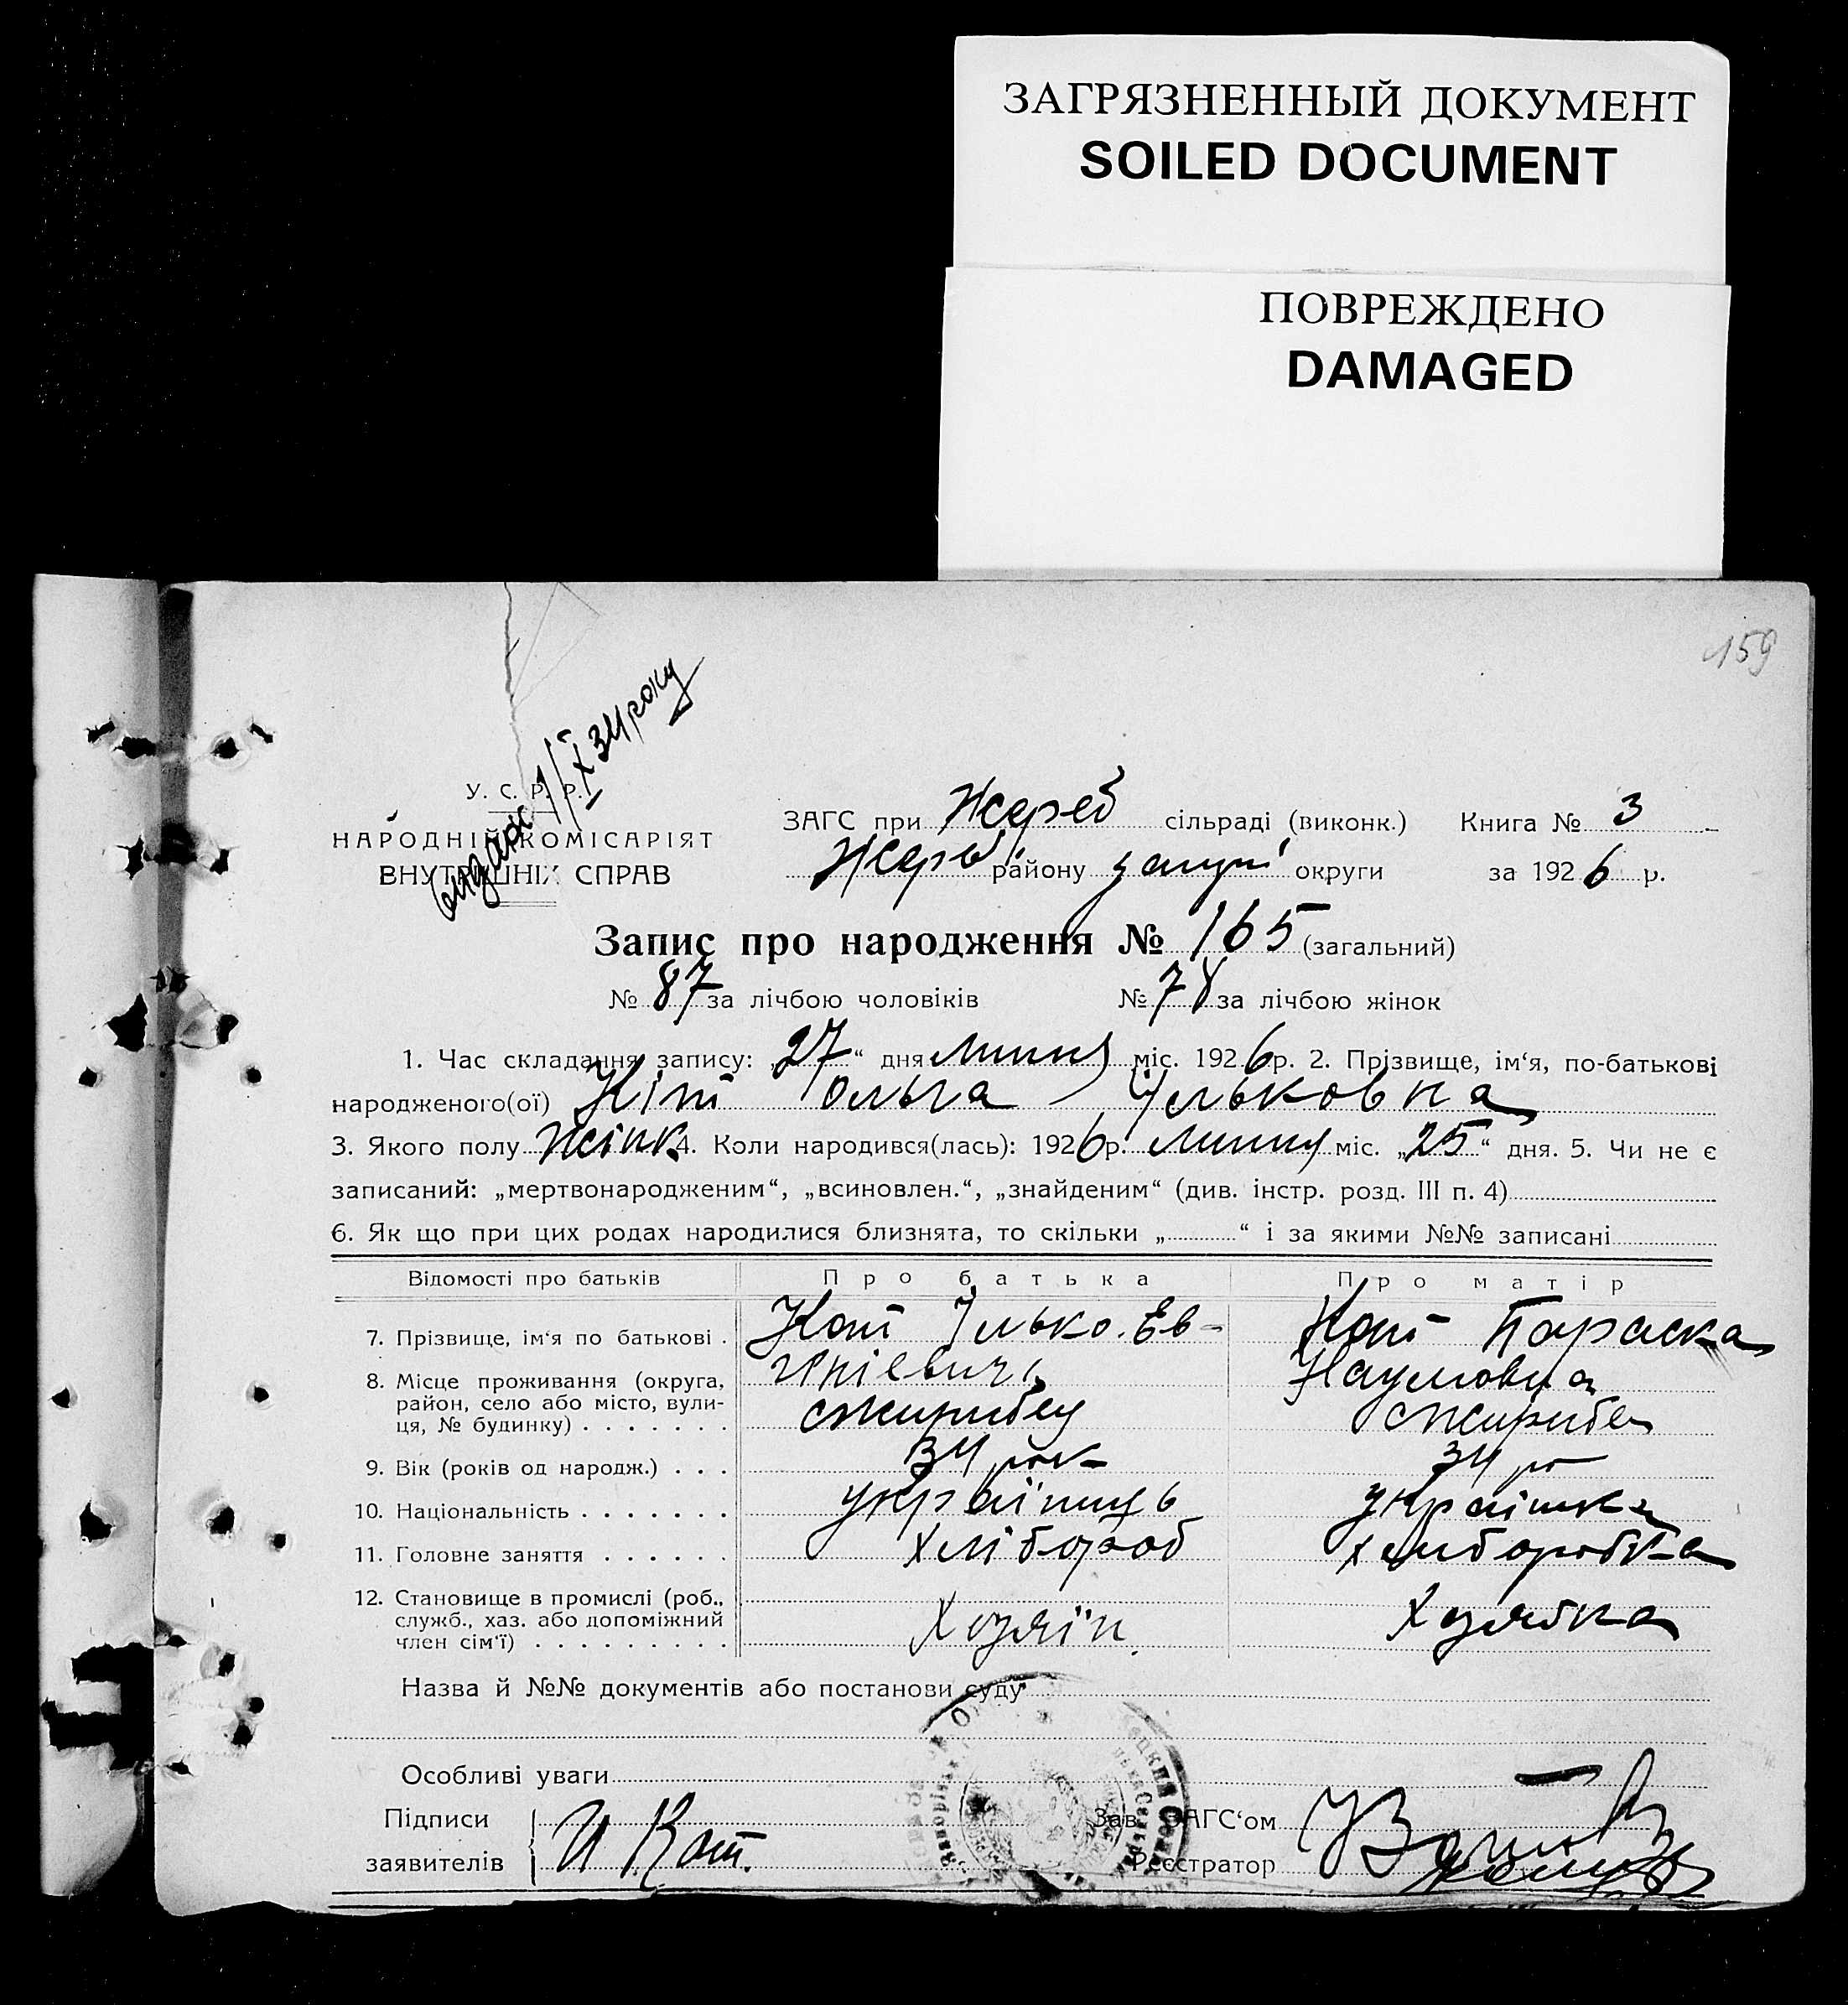 ЗАГРЯЗНЕННЫЙ ДОКУМЕНТ
SOILED DOCUMENT
ПОВРЕЖДЕНО
DAMAGED
159
У. С. Р. Р.
НАРОДНІЙ КОМІСАРІЯТ
ВНУТРІШНІХ СПРАВ
ЗАГС при Жереб сільраді (виконк.) Книга № 3
Жереб району запоріз округи за 1926 р.
Запис про народження № 165 (загальний)
№ 87 за лічбою чоловіків № 78 за лічбою жінок
1. Час складання запису: „27“ дня липня міс. 1926 р. 2. Прізвище, ім‘я, по-батькові
народженого(ої) Кіт Ольга Ільковна
3. Якого полу жінк 4. Коли народився(лась): 1926 р. липня міс. „25“ дня. 5. Чи не є
записаний: „мертвонародженим“, „всиновлен.“, „знайденим“ (див. інстр. розд. III п. 4)
6. Як що при цих родах народилися близнята, то скільки „ “ і за якими №№ записані
Відомості про батьків Про батька Про матір
7. Прізвище, ім‘я по батькові . Кот Ілько Ев- Кот Параска
гніевичь Наумовна
8. Місце проживання (округа,
район, село або місто, вули-
ця, № будинку) . . . . . . .
9. Вік (років од народж.) . . . 34 рок 34 ро
10. Національність . . . . . . . українць українка
11. Головне заняття . . . . . . хлібороб хлиборобка
12. Становище в промислі (роб.,
служб., хаз. або допоміжний
член сім‘ї) . . . . . . . . . Хозяїн Хозяйка
Назва й №№ документів або постанови суду
Особливі уваги
Підписи Зав. ЗАГС‘ом
заявителів И Кот. Реєстратор